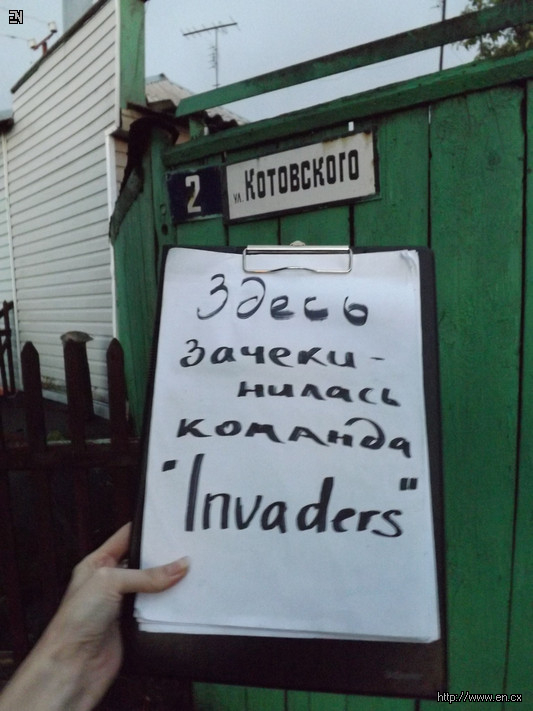 EN
2
ул. КОТОВСКОГО
Здесь
зачеки-
нилась
команда
"Invaders"
http://www.en.cx